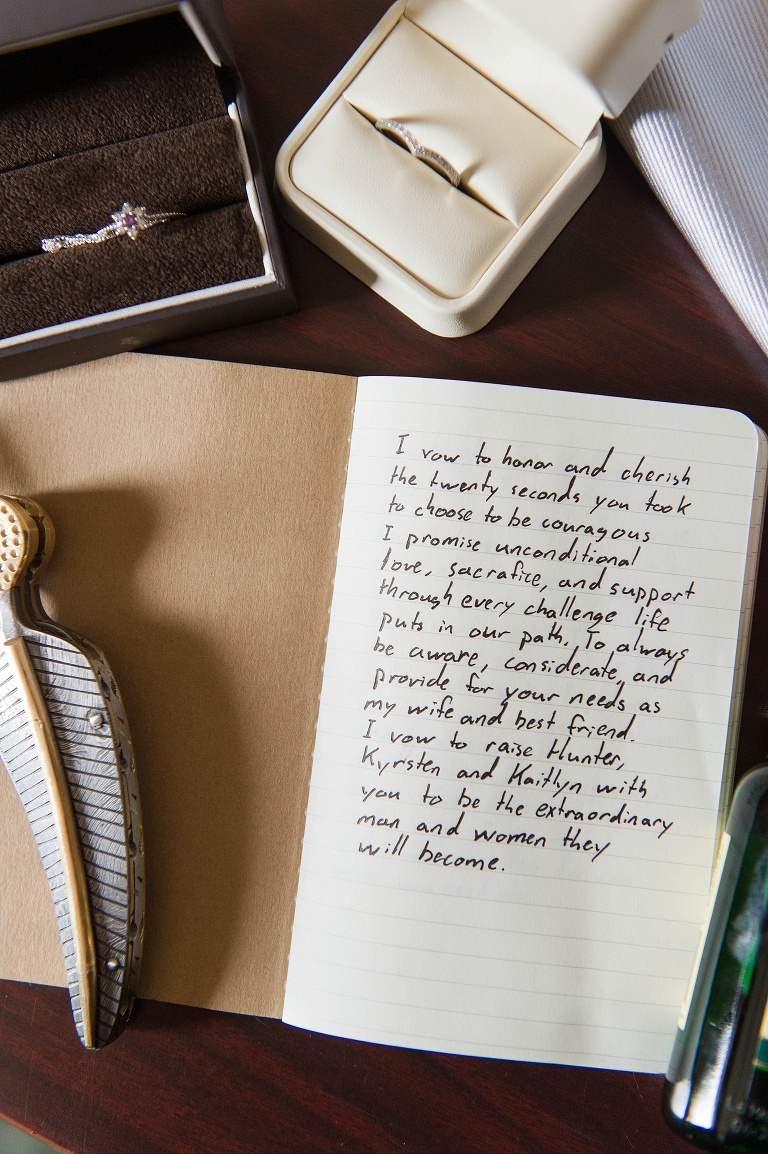 I vow to honor and cherish
the twenty seconds you took
to choose to be couragous
I promise unconditional
love, sacrafice, and support
through every challenge life
puts in our path. To always
be aware, considerate, and
provide for your needs as
my wife and best friend.
I vow to raise Hunter,
Kyrsten and Kaitlyn with
you to be the extraordinary
man and women they
will become.